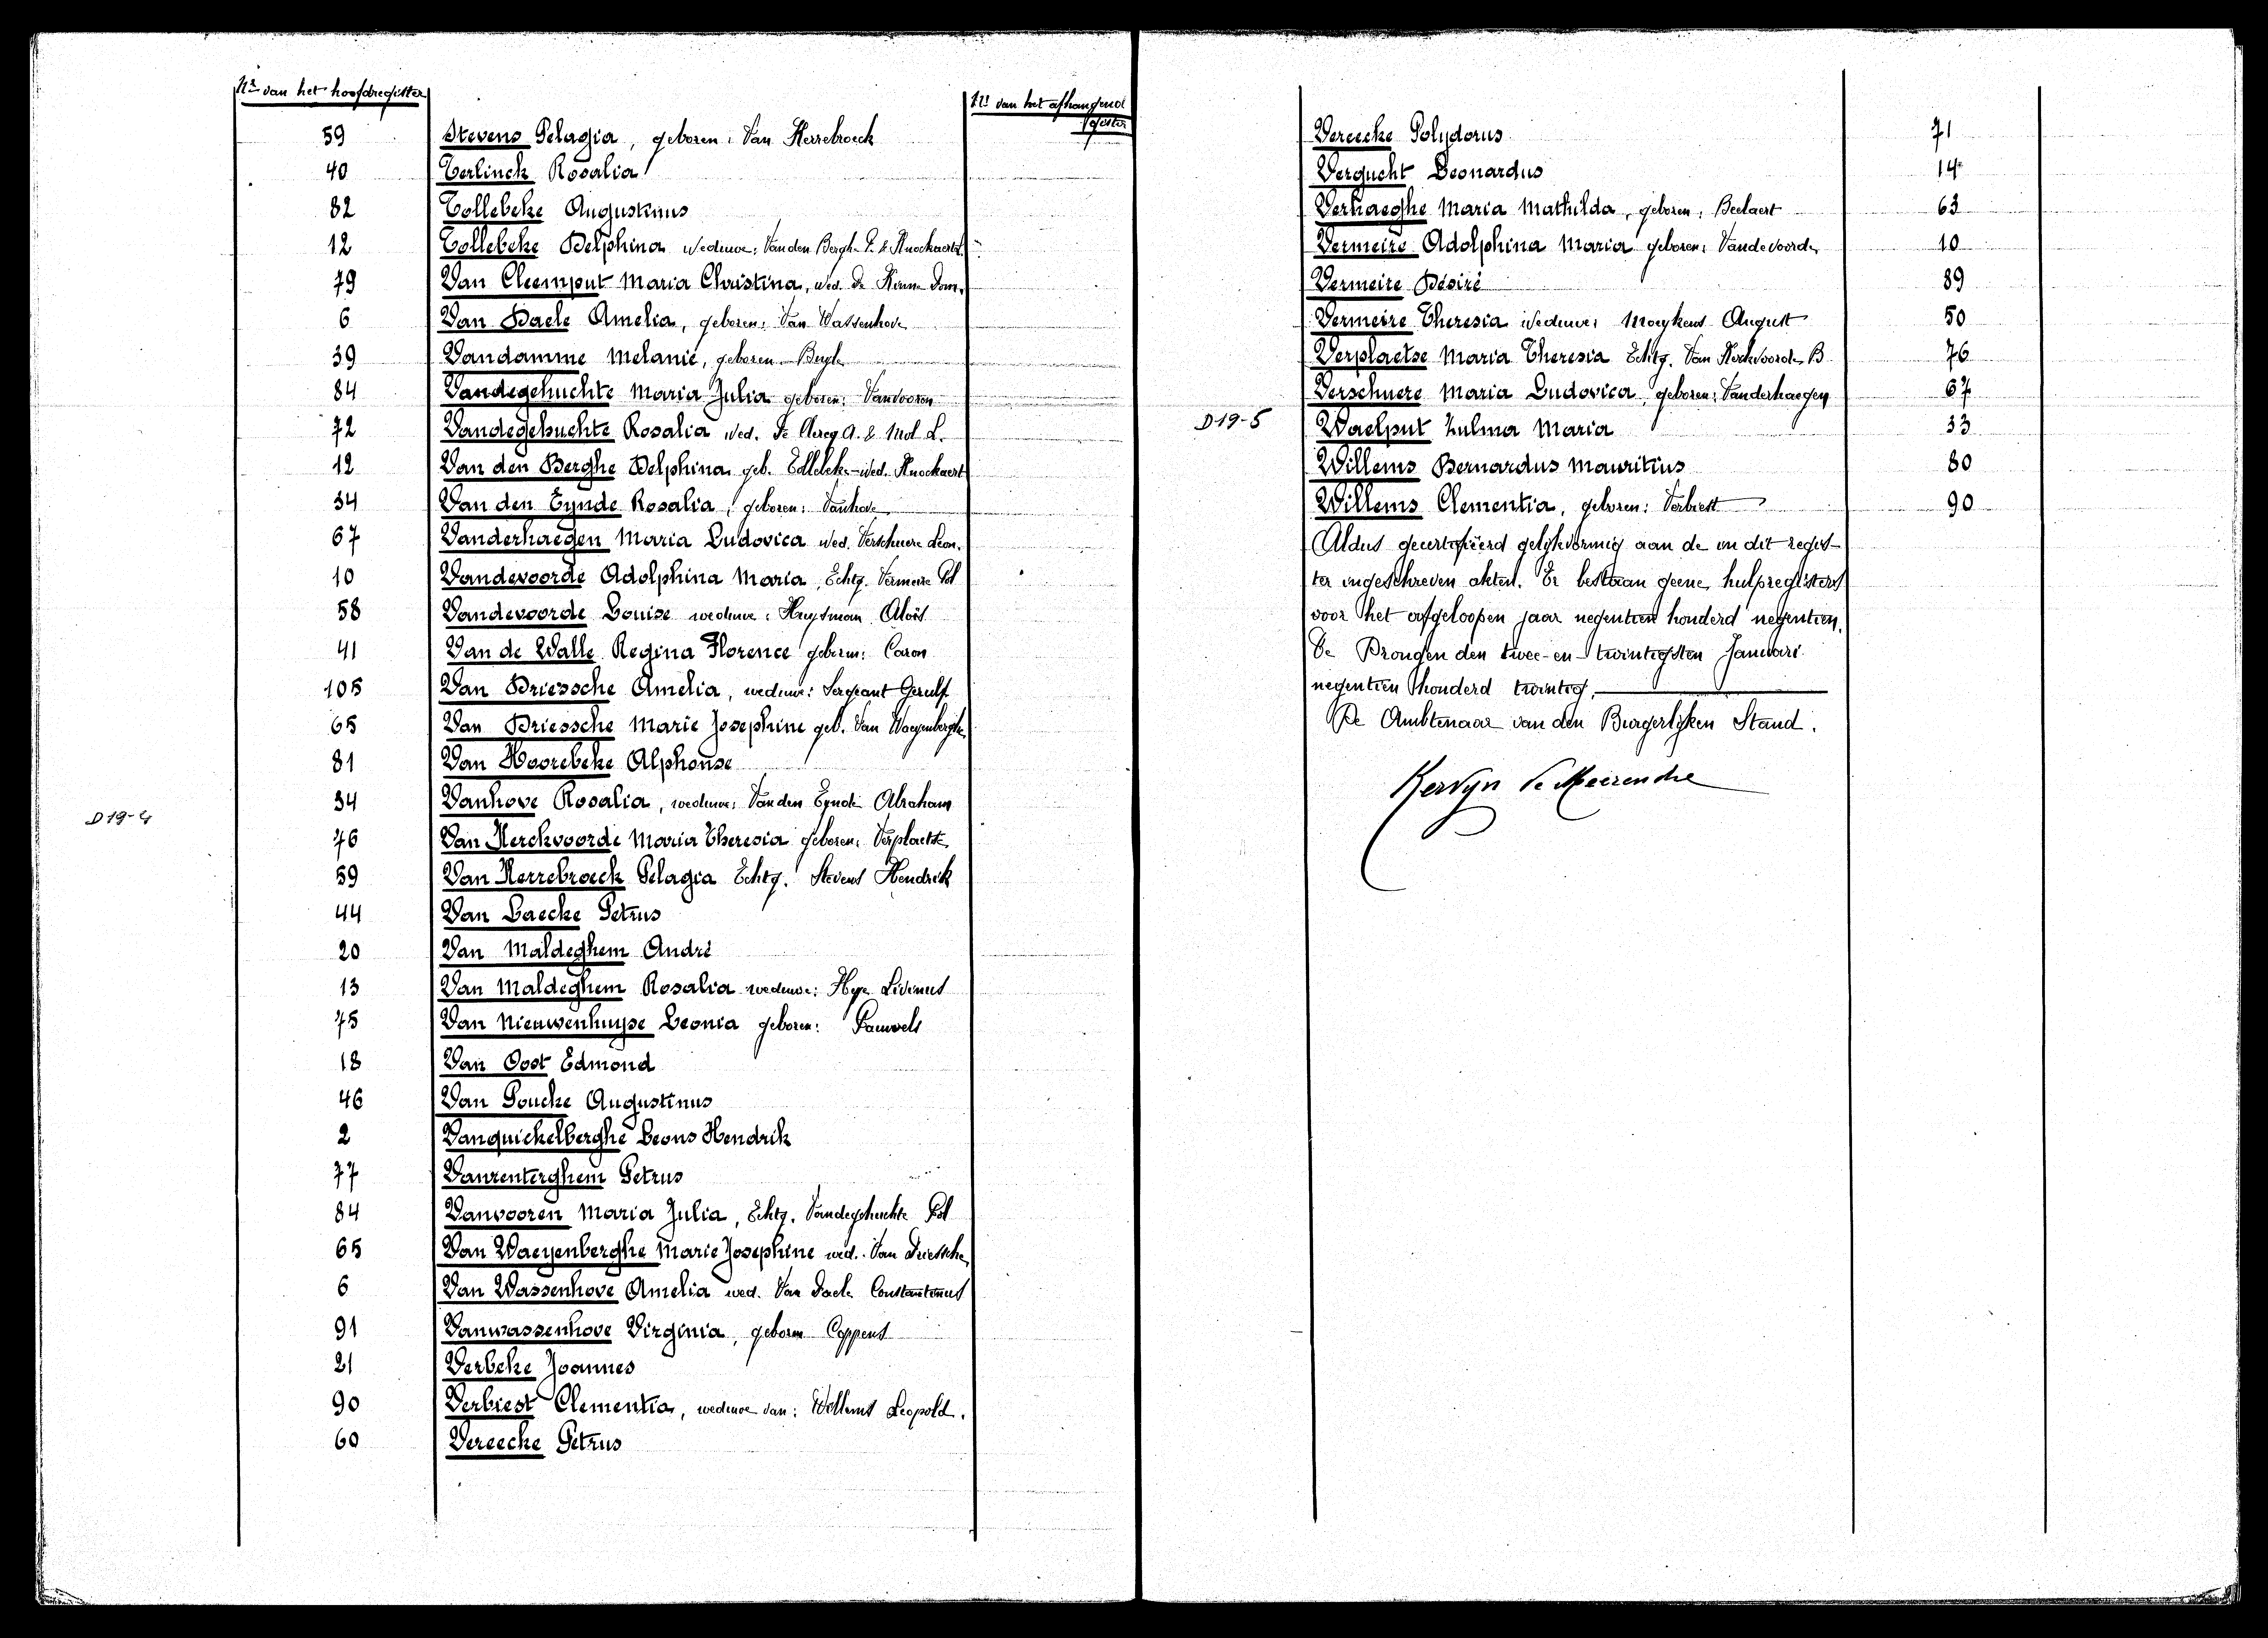 Nr van het hoofdregister
Nr van het afhangend
59 Stevens Pelagia, geboren: Van Kerrebroeck
40 Terlinck Rosalia
82 Tollebeke Augustinus
12 Tollebeke Delphina weduwe: Van den Berghe P. & Knockaert
79 Van Cleemput Maria Christina, wed. De Dom.
6 Van Daele Amelia, geboren: Van Wassenhove
39 Vandamme Melanie, geboren
84 Vandegehuchte Maria Julia geboren: Vanvooren
72 Vandegehuchte Rosalia wed. De Clercq A. & Mol L.
12 Van den Berghe Delphina geb. Tollebeke - wed. Knockaert
34 Van den Eynde Rosalia, geboren: Vanhove
67 Vanderhaegen Maria Ludovica wed. Verschuere Leon.
10 Vandevoorde Adolphina Maria, Echtg. Vermeire Pol
58 Vandevoorde Louise weduwe: Huysman Aloïs
41 Van de Walle Regina Florence geboren: Caron
105 Van Driessche Amelia, weduwe: Sergeant Gerulf
65 Van Driessche Marie Josephine geb. Van Waeyenberghe
81 Van Hoorebeke Alphonse
34 Vanhove Rosalia, weduwe: Van den Eynde Abraham
D19-4
76 Van Kerckvoorde Maria Theresia geboren: Verplaetse
59 Van Kerrebroeck Pelagia Echtg. Stevens Hendrik
44 Van Laecke Petrus
20 Van Maldeghem André
13 Van Maldeghem Rosalia weduwe: Hye Livinus
75 Van Nieuwenhuyse Leonia geboren: Pauwels
18 Van Oost Edmond
46 Van Poucke Augustinus
2 Vanquickelberghe Leons Hendrik
77 Vanrenterghem Petrus
84 Vanvooren Maria Julia, Echtg. Vandegehuchte Pol
65 Van Waeyenberghe Marie Josephine wed. Van Driessche
6 Van Wassenhove Amelia wed. Van Daele Constantinus
91 Vanwassenhove Virginia, geboren Coppens
21 Verbeke Joannes
90 Verbiest Clementia, weduwe van: Willems Leopold.
60 Vereecke Petrus
Vereecke Polydorus 71
Vergucht Leonardus 14
Verhaeghe Maria Mathilda, geboren: Beelaert 63
Vermeire Adolphina Maria geboren: Vandevoorde 10
Vermeire Désiré 89
Vermeire Theresia weduwe: Moeykens August 50
Verplaetse Maria Theresia Echtg. Van Kerckvoorde B 76
Verschuere Maria Ludovica, geboren: Vanderhaegen 67
D19-5
Waelput Zulma Maria 33
Willems Bernardus Mauritius 80
Willems Clementia, geboren: Verbiest 90
Aldus gecertifieerd gelijkvormig aan de in dit regis-
ter ingeschreven akten. Er bestaan geene hulpregisters
voor het afgeloopen jaar negentien honderd negentien.
Te Drongen den twee-en-twintigsten Januari
negentien honderd twintig.
De Ambtenaar van den Burgerlijken Stand.
Kervyn de Meerendre